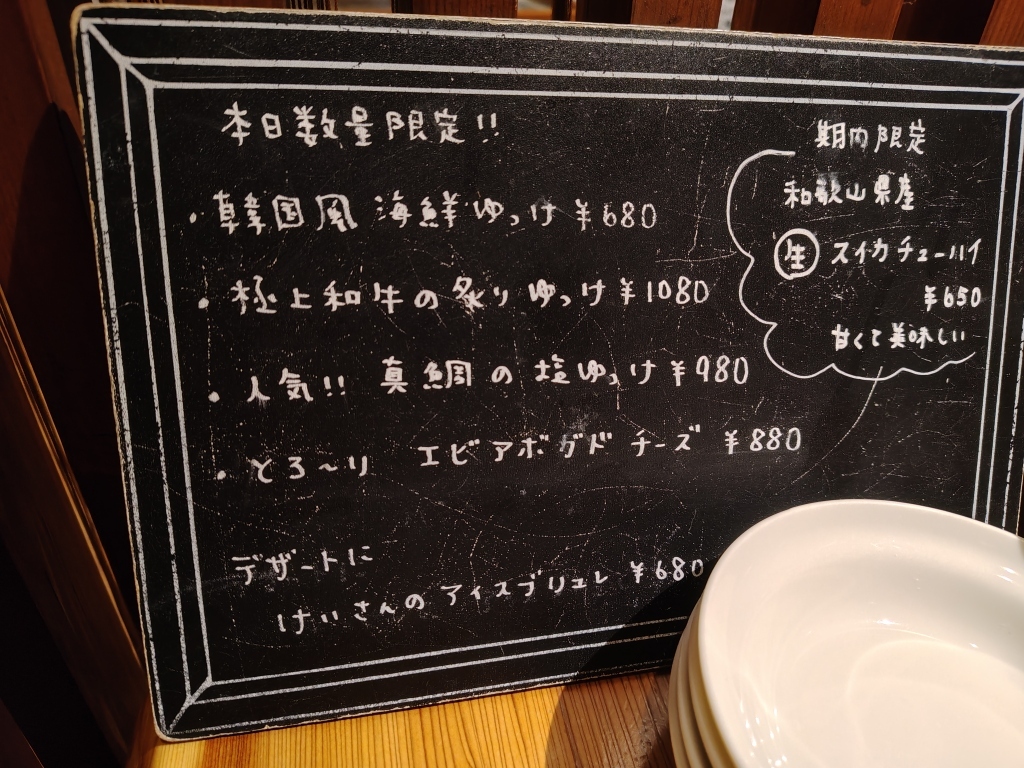 本日数量限定!!
・韓国風 海鮮ゆっけ ¥680
・極上和牛の炙りゆっけ ¥1080
・人気!! 真鯛の塩ゆっけ ¥980
・とろ〜り エビアボガドチーズ ¥880
デザートに
けいさんのアイスブリュレ ¥680
期内限定
和歌山県産
生 スイカチューハイ
¥650
甘くて美味しい